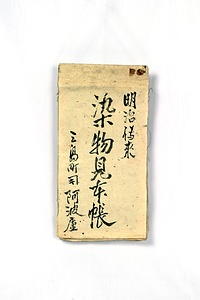 明治以来
染物見本帳
三島町 阿波屋